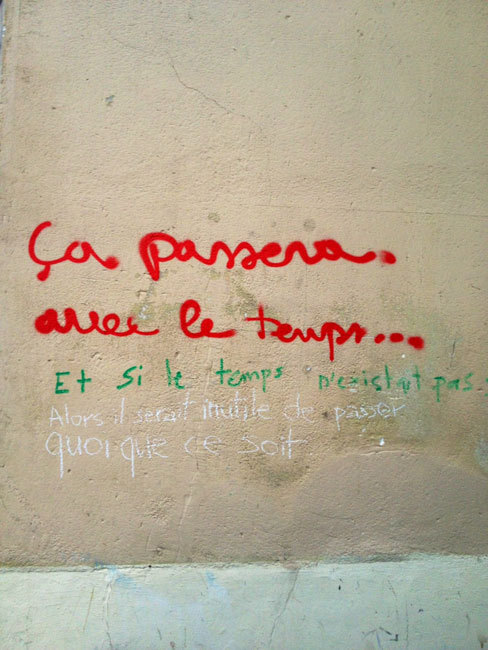 Ça passera
avec le temps...
Et si le temps n'existait pas
Alors il serait inutile de passer
quoique ce soit